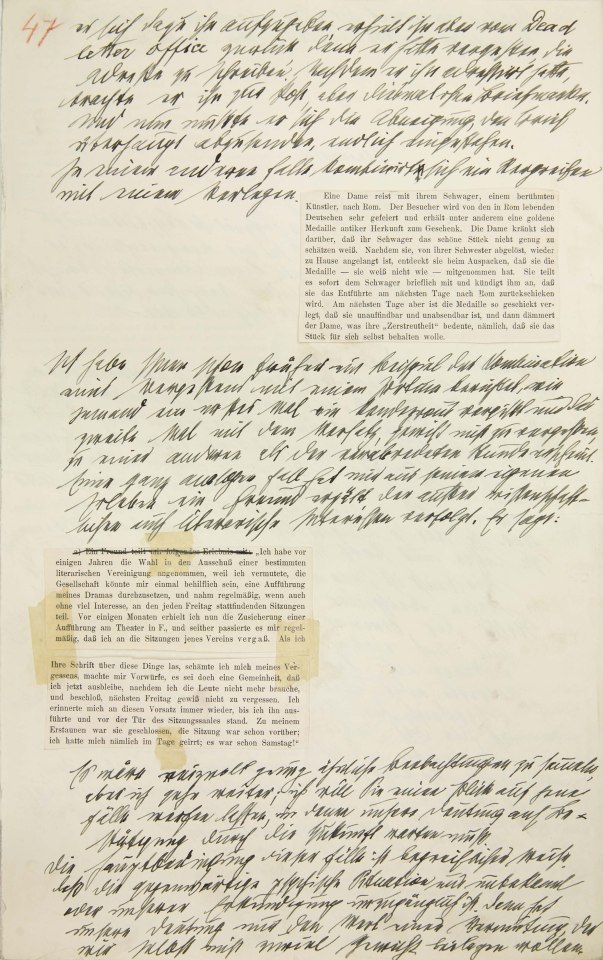 47
er sich dazu ihn aufzugeben, erhielt ihn aber vom Dead
letter office zurück, denn er hatte vergessen die
Adresse zu schreiben. Nachdem er ihn adressirt hatte,
brachte er ihn zur Post, aber diesmal ohne Briefmarke.
Und nun mußte er sich die Abneigung, den Brief
überhaupt abzusenden, endlich eingestehen.
In einem anderen Falle kombinirt sich ein Vergreifen
mit einem Verlegen.
Eine Dame reist mit ihrem Schwager, einem berühmten
Künstler, nach Rom. Der Besucher wird von den in Rom lebenden
Deutschen sehr gefeiert und erhält unter anderem eine goldene
Medaille antiker Herkunft zum Geschenk. Die Dame kränkt sich
darüber, daß ihr Schwager das schöne Stück nicht genug zu
schätzen weiß. Nachdem sie, von ihrer Schwester abgelöst, wieder
zu Hause angelangt ist, entdeckt sie beim Auspacken, daß sie die
Medaille — sie weiß nicht wie — mitgenommen hat. Sie teilt
es sofort dem Schwager brieflich mit und kündigt ihm an, daß
sie das Entführte am nächsten Tage nach Rom zurückschicken
wird. Am nächsten Tage aber ist die Medaille so geschickt ver-
legt, daß sie unauffindbar und unabsendbar ist, und dann dämmert
der Dame, was ihre „Zerstreutheit“ bedeute, nämlich, daß sie das
Stück für sich selbst behalten wolle.
Ich habe Ihnen schon früher ein Beispiel der Combination
eines Vergessens mit einem Irrtum berichtet, wie
jemand ein erstes Mal ein Rendezvous vergißt und das
zweite Mal mit dem Vorsatz, gewiß nicht zu vergessen,
zu einer anderen als der verabredeten Stunde erscheint.
Einen ganz analogen Fall hat mir aus seinem eigenen
Erleben ein Freund erzählt der außer wissenschaft-
lichen auch literarische Interessen verfolgt. Er sagt:
a) Ein Freund teilt mir folgendes Erlebnis mit: „Ich habe vor
einigen Jahren die Wahl in den Ausschuß einer bestimmten
literarischen Vereinigung angenommen, weil ich vermutete, die
Gesellschaft könnte mir einmal behilflich sein, eine Aufführung
meines Dramas durchzusetzen, und nahm regelmäßig, wenn auch
ohne viel Interesse, an den jeden Freitag stattfindenden Sitzungen
teil. Vor einigen Monaten erhielt ich nun die Zusicherung einer
Aufführung am Theater in F., und seither passierte es mir regel-
mäßig, daß ich an die Sitzungen jenes Vereins vergaß. Als ich
Ihre Schrift über diese Dinge las, schämte ich mich meines Ver-
gessens, machte mir Vorwürfe, es sei doch eine Gemeinheit, daß
ich jetzt ausbleibe, nachdem ich die Leute nicht mehr brauche,
und beschloß, nächsten Freitag gewiß nicht zu vergessen. Ich
erinnerte mich an diesen Vorsatz immer wieder, bis ich ihn aus-
führte und vor der Tür des Sitzungssaales stand. Zu meinem
Erstaunen war sie geschlossen, die Sitzung war schon vorüber;
ich hatte mich nämlich im Tage geirrt; es war schon Samstag!“
Es wäre reizvoll genug ähnliche Beobachtungen zu sammeln,
aber ich gehe weiter; ich will Sie einen Blick auf jene
Fälle werfen lassen, in denen unsere Deutung auf Be-
stätigung durch die Zukunft warten muß.
Die Hauptbedingung dieser Fälle ist begreiflicher Weise,
daß die gegenwärtige psychische Situation uns unbekannt
oder unserer Erkundigung unzugänglich ist. Dann hat
unsere Deutung nur den Wert einer Vermutung, der
wir selbst nicht zuviel Gewicht beilegen wollen.